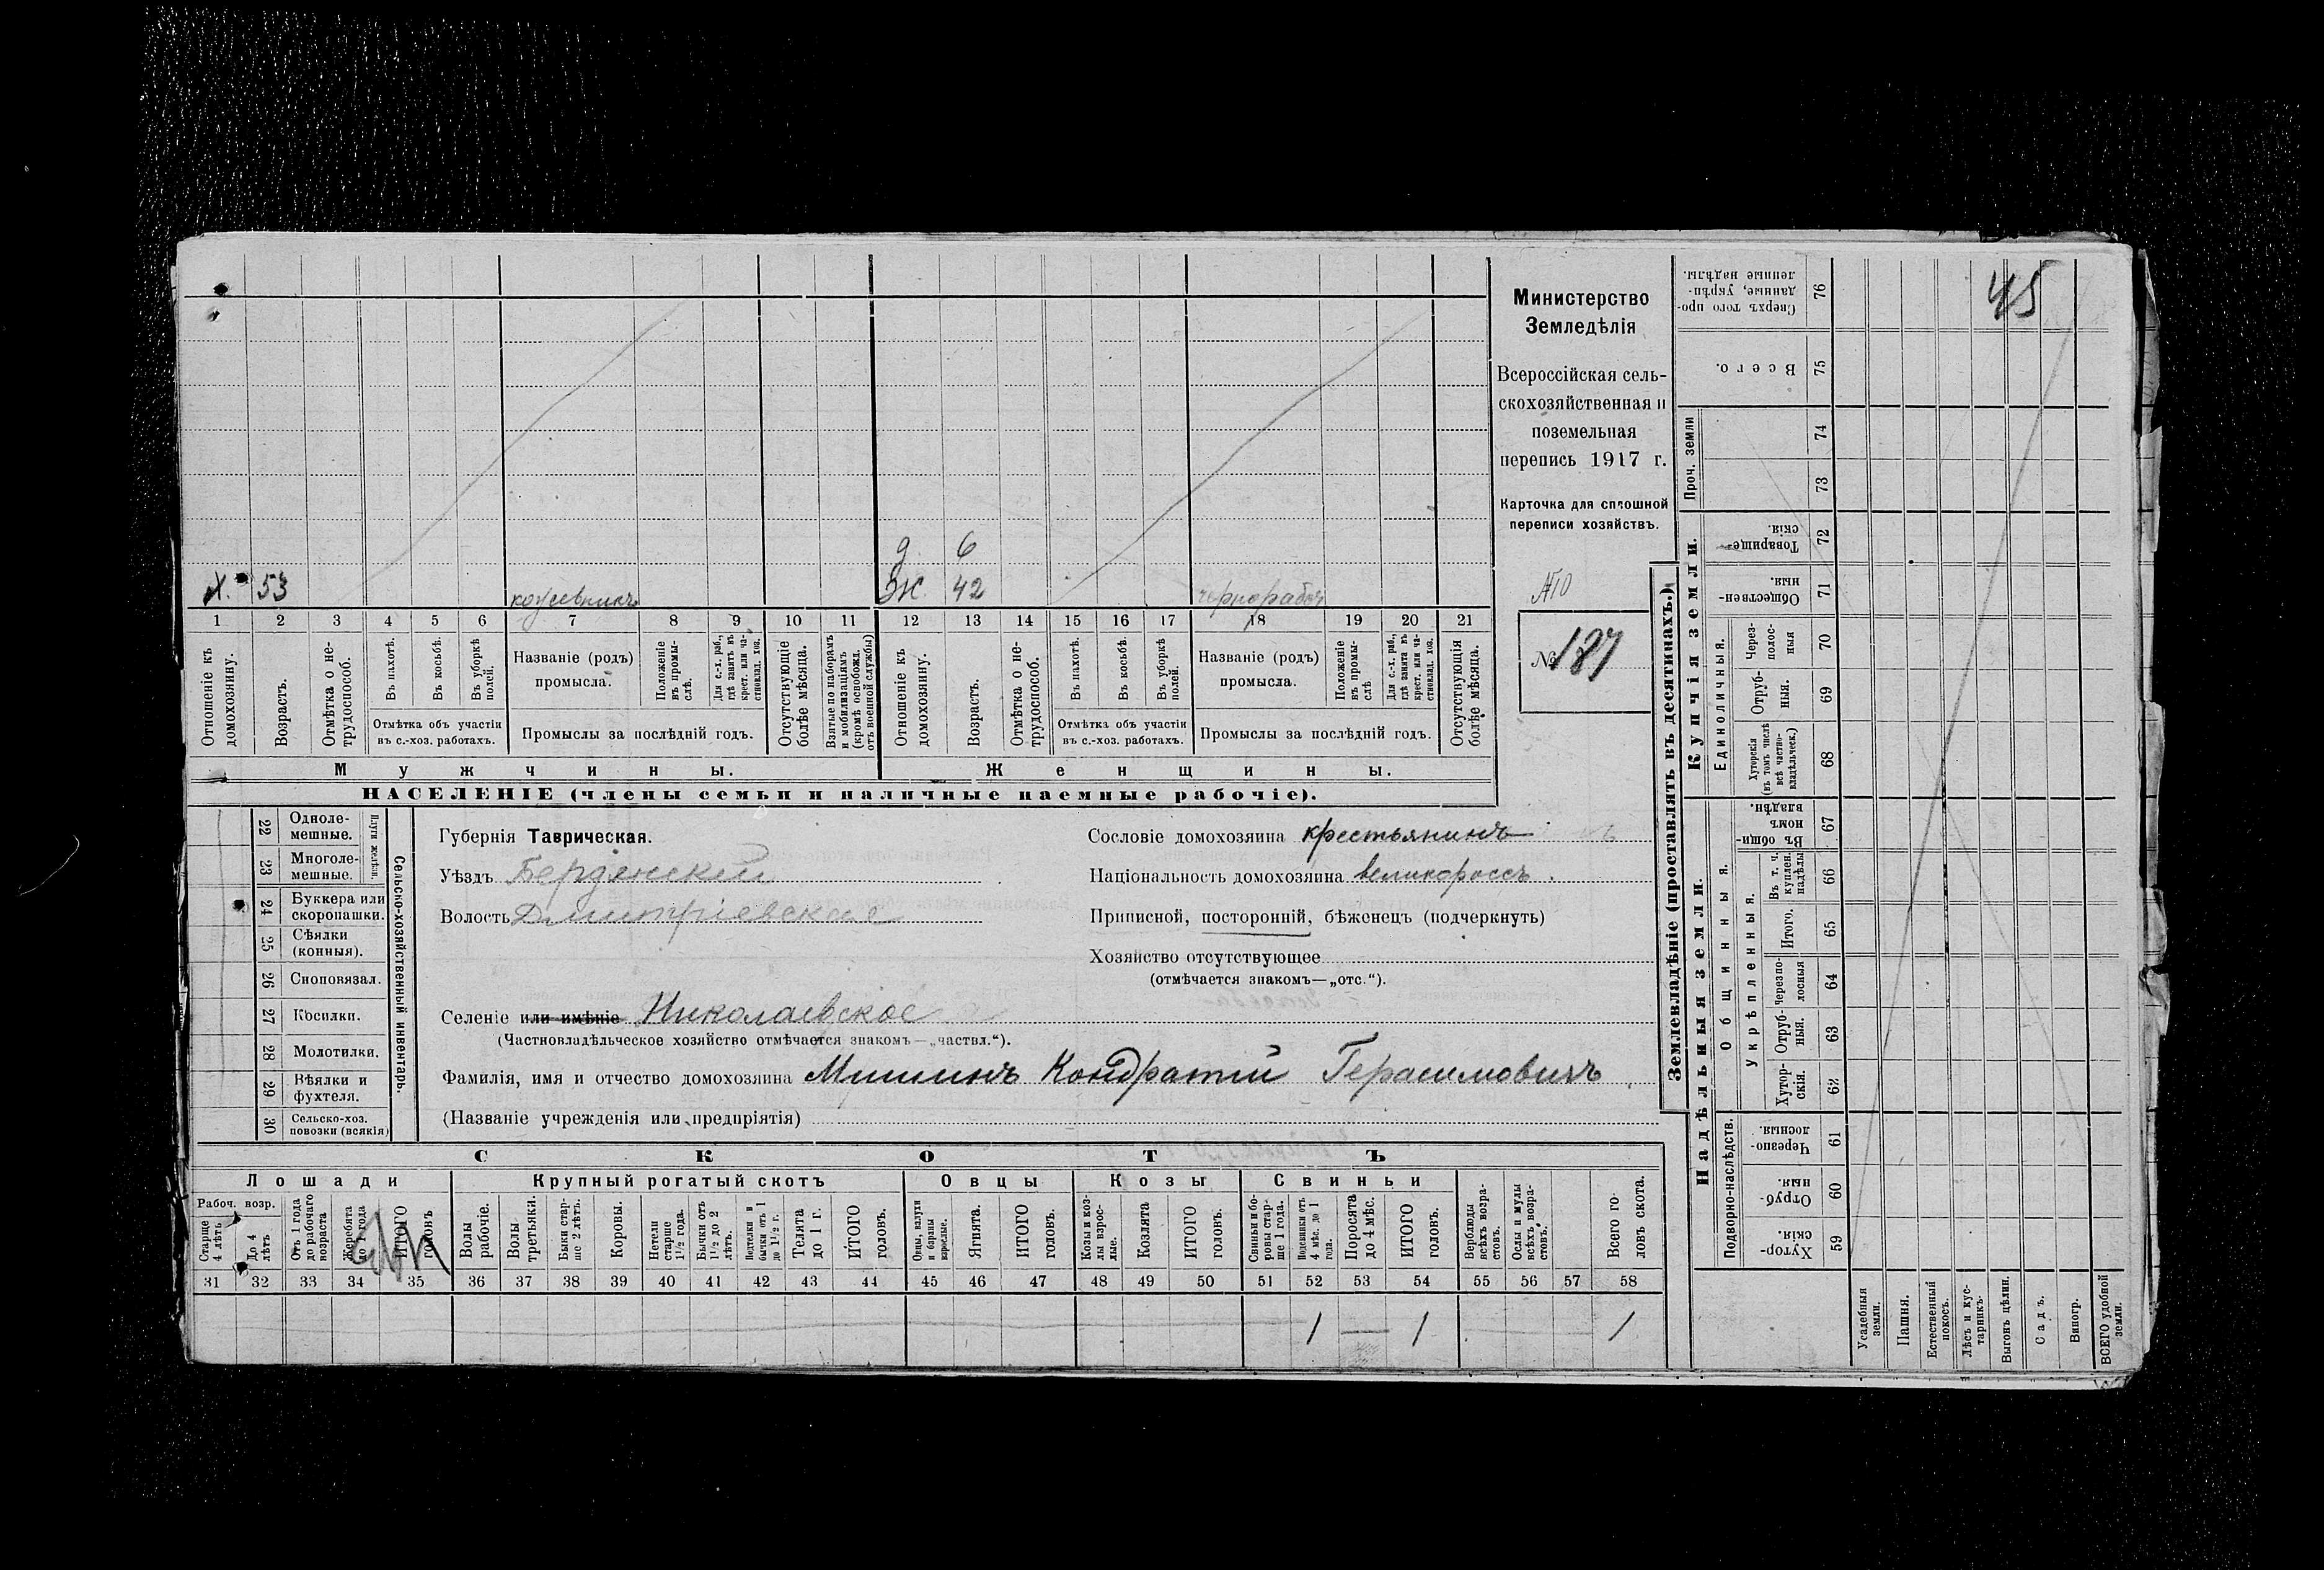 45
Министерство
Земледѣлія
Всероссійская сель-
скохозяйственная и
поземельная
перепись 1917 г.
Карточка для сплошной
переписи хозяйствъ.
№ 187
д. 6
х. 53 кожевникъ Ж. 42 чернорабоч
1 2 3 4 5 6 7 8 9 10 11 12 13 14 15 16 17 18 19 20 21
Отношеніе къ домохозяину.
Возрастъ.
Отмѣтка о не-трудоспособ.
Въ пахотѣ.
Въ косьбѣ.
Въ уборкѣ полей.
Отмѣтка объ участіи
въ с.-хоз. работахъ.
Названіе (родъ)
промысла.
Положеніе въ промы-слѣ.
Для с.-х. раб., гдѣ занятъ въ крест. или ча-стновлад. хоз.
Промыслы за послѣдній годъ.
Отсутствующіе болѣе мѣсяца.
Взятые по наборамъ и мобилизаціямъ (кромѣ освобожд. отъ военной службы)
Отношеніе къ домохозяину.
Возрастъ.
Отмѣтка о не-трудоспособ.
Въ пахотѣ.
Въ косьбѣ.
Въ уборкѣ полей.
Отмѣтка объ участіи
въ с.-хоз. работахъ.
Названіе (родъ)
промысла.
Положеніе въ промы-слѣ
Для с.-х. раб., гдѣ занята въ крест. или ча-стновлад. хоз.
Промыслы за послѣдній годъ.
Отсутствующія болѣе мѣсяца.
Мужчины. Женщины.
НАСЕЛЕНІЕ (члены семьи и наличные наемные рабочіе).
Сельско-хозяйственный инвентарь.
Плуги желѣзн.
22 Одноле-мешные.
23 Многоле-мешные.
24 Буккера или скоропашки.
25 Сѣялки (конныя).
26 Сноповязал.
27 Косилки.
28 Молотилки.
29 Вѣялки и фухтеля.
30 Сельско-хоз. повозки (всякія)
Губернія Таврическая.
Уѣздъ Бердянскій
Волость Дмитріевская
Сословіе домохозяина крестьянинъ
Національность домохозяина великороссъ.
Приписной, посторонній, бѣженецъ (подчеркнуть)
Хозяйство отсутствующее
(отмѣчается знакомъ—„отс.“).
Селеніе или имѣніе Николаевское
(Частновладѣльческое хозяйство отмѣчается знакомъ—„частвл.“).
Фамилія, имя и отчество домохозяина Мишинъ Кондратій Герасимовичъ
(Названіе учрежденія или предпріятія)
СКОТЪ
Лошади Крупный рогатый скотъ Овцы Козы Свиньи
Рабоч. возр.
Старше 4 лѣтъ
До 4 лѣтъ
Отъ 1 года до рабочаго возраста
Жеребята до 1 года
ИТОГО головъ
Волы рабочіе.
Волы третьяки.
Быки стар-ше 2 лѣтъ.
Коровы.
Нетели старше 1½ года.
Бычки отъ 1½ до 2 лѣтъ.
Подтелки и бычки отъ 1 до 1½ г.
Телята до 1 г.
ИТОГО головъ.
Овцы, валухи и бараны взрослые.
Ягнята.
ИТОГО головъ.
Козы и коз-лы взрос-лые.
Козлята
ИТОГО головъ.
Свиньи и бо-ровы стар-ше 1 года.
Подсвинки отъ 4 мѣс. до 1 года.
Поросята до 4 мѣс.
ИТОГО головъ.
Верблюды всѣхъ возра-стовъ.
Ослы и мулы всѣхъ возра-стовъ.
Всего го-ловъ скота.
31 32 33 34 35 36 37 38 39 40 41 42 43 44 45 46 47 48 49 50 51 52 53 54 55 56 57 58
1 — 1 1
Землевладѣніе (проставлять въ десятинахъ.)
Надѣльныя земли. Купчія земли.
Подворно-наслѣдств.
Общинныя.
Укрѣпленныя.
Единоличныя.
Проч. земли
Хутор-скія. 59
Отруб-ныя. 60
Черезпо-лосныя. 61
Хутор-скія. 62
Отруб-ныя. 63
Черезпо-лосныя 64
Итого. 65
Въ т. ч. куплен. надѣлы 66
Въ общи-номъ владѣн. 67
Хуторскія (въ томъ числѣ всѣ частно-владѣльческ.) 68
Отруб-ныя. 69
Через-полос-ныя 70
Обществен-ныя. 71
Товарище-скія. 72
73
74
Всего. 75
Сверхъ того про-данные, укрѣп-ленные надѣлы. 76
Усадебныя земли.
Пашня.
Естественный покосъ.
Лѣсъ и кус-тарникъ.
Выгонъ цѣлин.
Садъ.
Виногр.
ВСЕГО удобной земли.